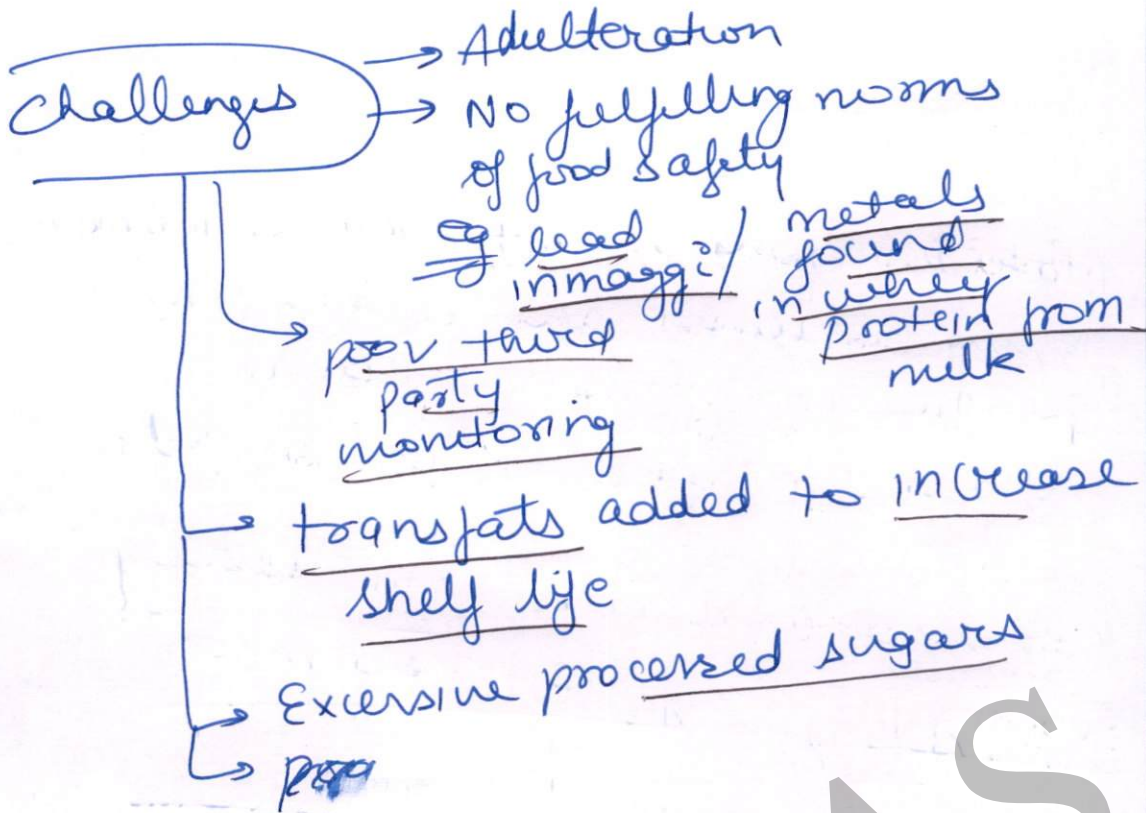 Challenges
→ Adulteration
→ No fulfilling norms
of food safety
eg lead
in maggi / metals
found
in whey
protein from
milk
→ poor third
party
monitoring
→ transfats added to increase
shelf life
→ Excersive processed sugars
→
AS